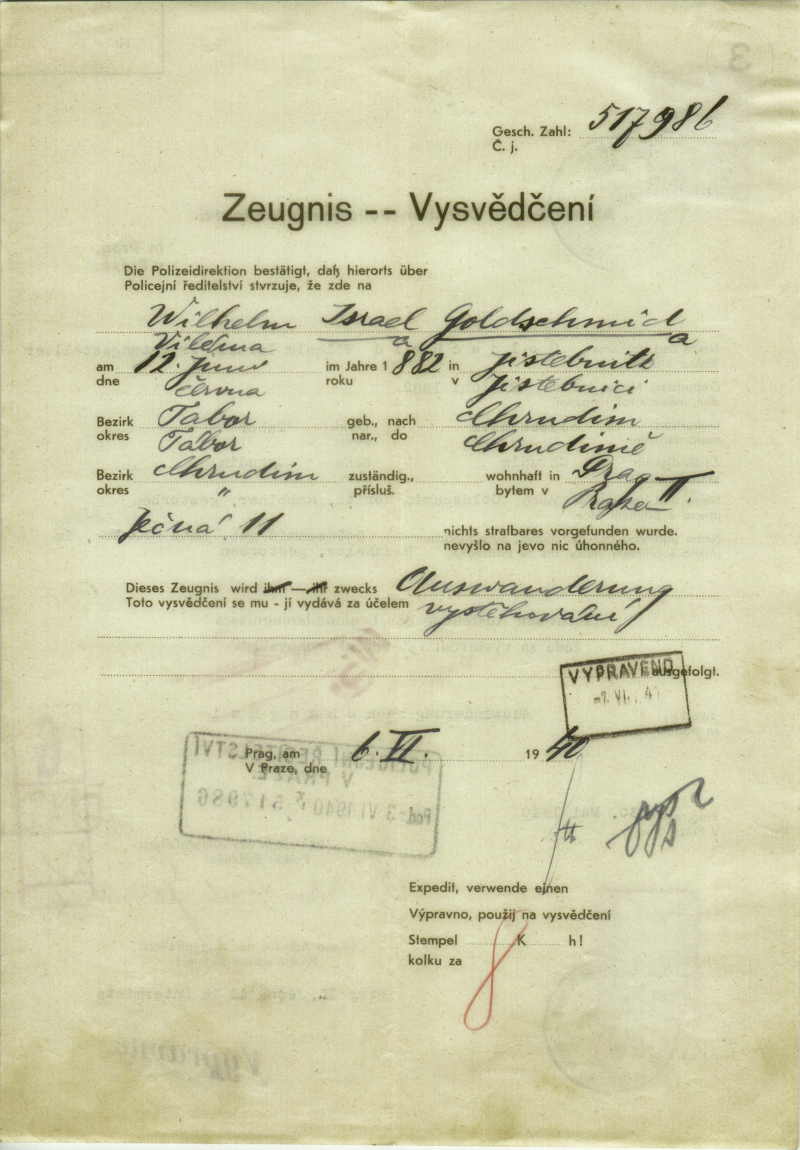 Gesch. Zahl: 517986
Č. j.
Zeugnis -- Vysvědčení
Die Polizeidirektion bestätigt, daß hierorts über
Policejní ředitelství stvrzuje, že zde na
Wilhelm Israel Goldschmid
Viléma a a
am 12. Juni im Jahre 1882 in Jistebnitz
dne června roku v Jistebnici
Bezirk Tabor geb., nach Chrudim
okres Tábor nar., do Chrudimě
Bezirk Chrudim zuständig., wohnhaft in Prag II.
okres " přísluš. bytem v Praze
Ječná 11 nichts strafbares vorgefunden wurde.
nevyšlo na jevo nic úhonného.
Dieses Zeugnis wird ihm — ihr zwecks Auswanderung
Toto vysvědčení se mu - jí vydává za účelem vystěhování
VYPRAVENO ausgefolgt.
Prag, am 6. VI. 1940
V Praze, dne
POLICEJNÍ ŘEDITELSTVÍ
V PRAZE
Pod. 3 VI 1940 517986
Expedit, verwende einen
Výpravno, použij na vysvědčení
Stempel 8 K h!
kolku za